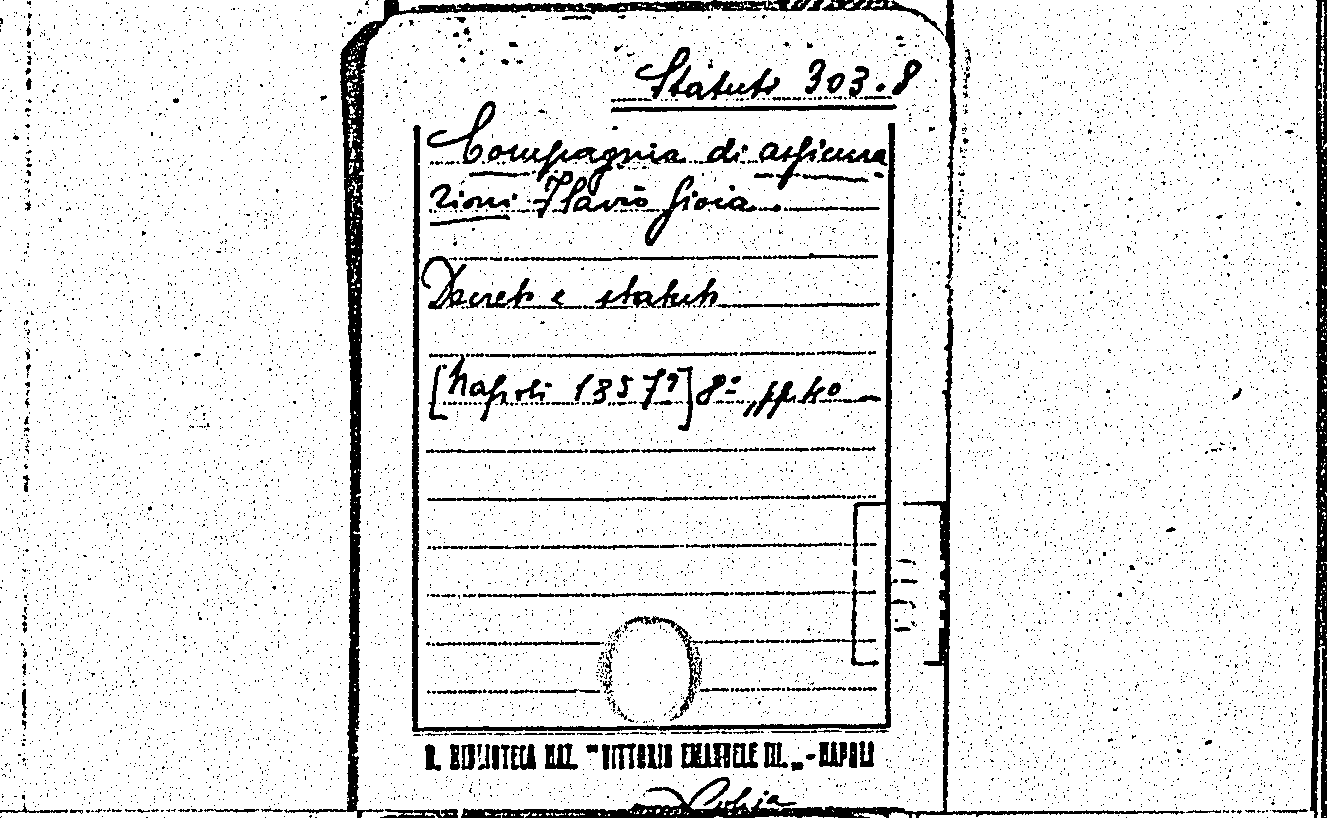 Statuti 303.8
Compagnia di assicura
zioni Flavio Gioia.
Decreto e statuto
[Napoli 1857?] 8º, pp.
R. BIBLIOTECA NAZ. "VITTORIO EMANUELE III." - NAPOLI